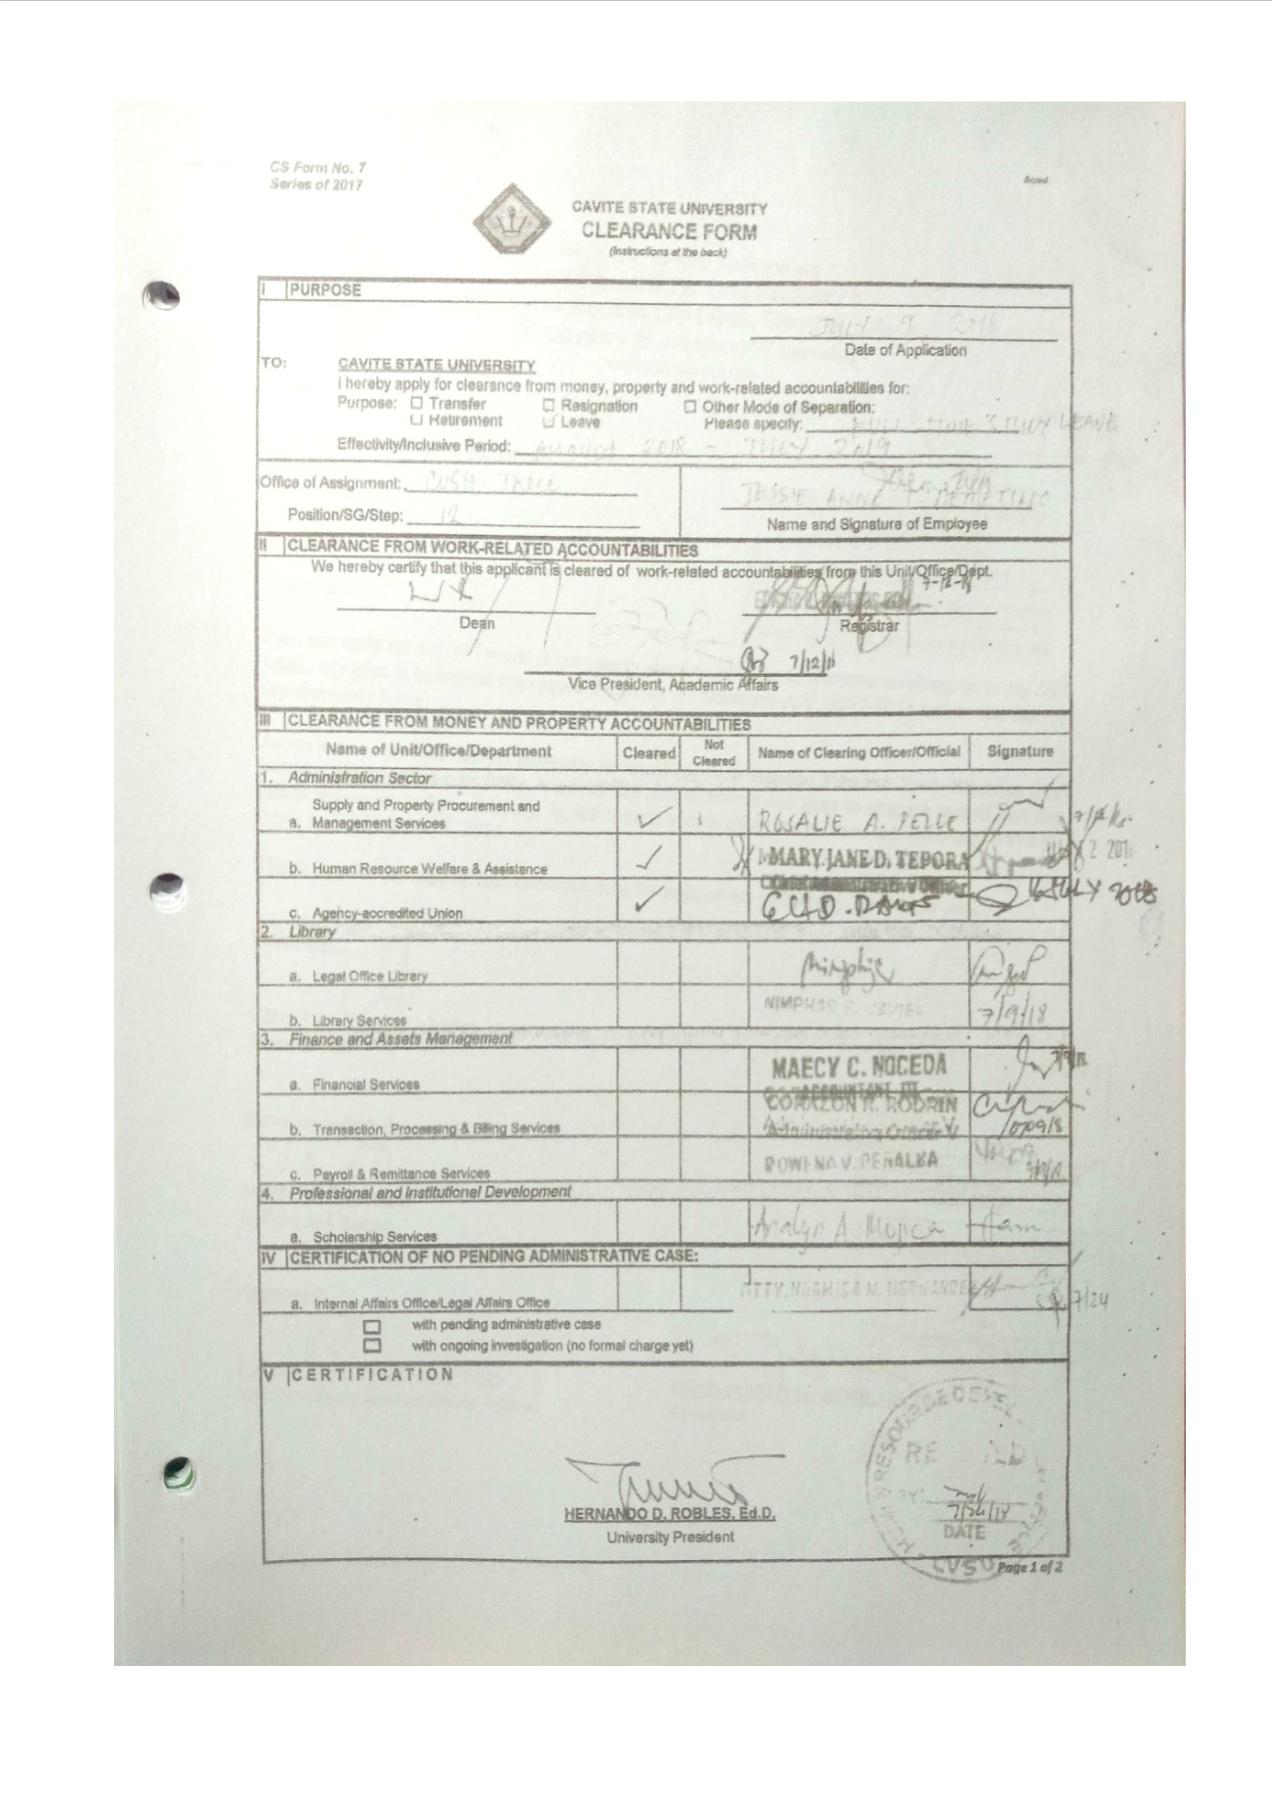 CS Form No. 7
Series of 2017
Acad
CAVITE STATE UNIVERSITY
CLEARANCE FORM
(Instructions at the back)
I PURPOSE
JULY 9 2018
Date of Application
TO: CAVITE STATE UNIVERSITY
I hereby apply for clearance from money, property and work-related accountabilities for:
Purpose: Transfer Resignation Other Mode of Separation:
Retirement Leave Please specify: FULL TIME STUDY LEAVE
Effectivity/Inclusive Period: August 2018 - JULY 2019
Office of Assignment: CVSU-
JESSIE ANNE T.
Position/SG/Step: 12
Name and Signature of Employee
II CLEARANCE FROM WORK-RELATED ACCOUNTABILITIES
We hereby certify that this applicant is cleared of work-related accountabilities from this Unit/Office/Dept.
7-12-18
Dean Registrar
7/12/18
Vice President, Academic Affairs
III CLEARANCE FROM MONEY AND PROPERTY ACCOUNTABILITIES
Name of Unit/Office/Department Cleared Not Cleared Name of Clearing Officer/Official Signature
1. Administration Sector
Supply and Property Procurement and
a. Management Services ROSALIE A. PELLE
b. Human Resource Welfare & Assistance MARY JANE D. TEPORA
c. Agency-accredited Union JULY 2018
2. Library
a. Legal Office Library
b. Library Services 7/9/18
3. Finance and Assets Management
a. Financial Services MAECY C. NOCEDA
ACCOUNTANT III
b. Transaction, Processing & Billing Services CORAZON R. RODRIN
Administrative Officer V
c. Payroll & Remittance Services ROWENA V. PEÑALBA
4. Professional and Institutional Development
a. Scholarship Services Analyn A. Mojica
IV CERTIFICATION OF NO PENDING ADMINISTRATIVE CASE:
a. Internal Affairs Office/Legal Affairs Office 7/24
with pending administrative case
with ongoing investigation (no formal charge yet)
V CERTIFICATION
HERNANDO D. ROBLES, Ed.D.
University President
DATE
Page 1 of 2